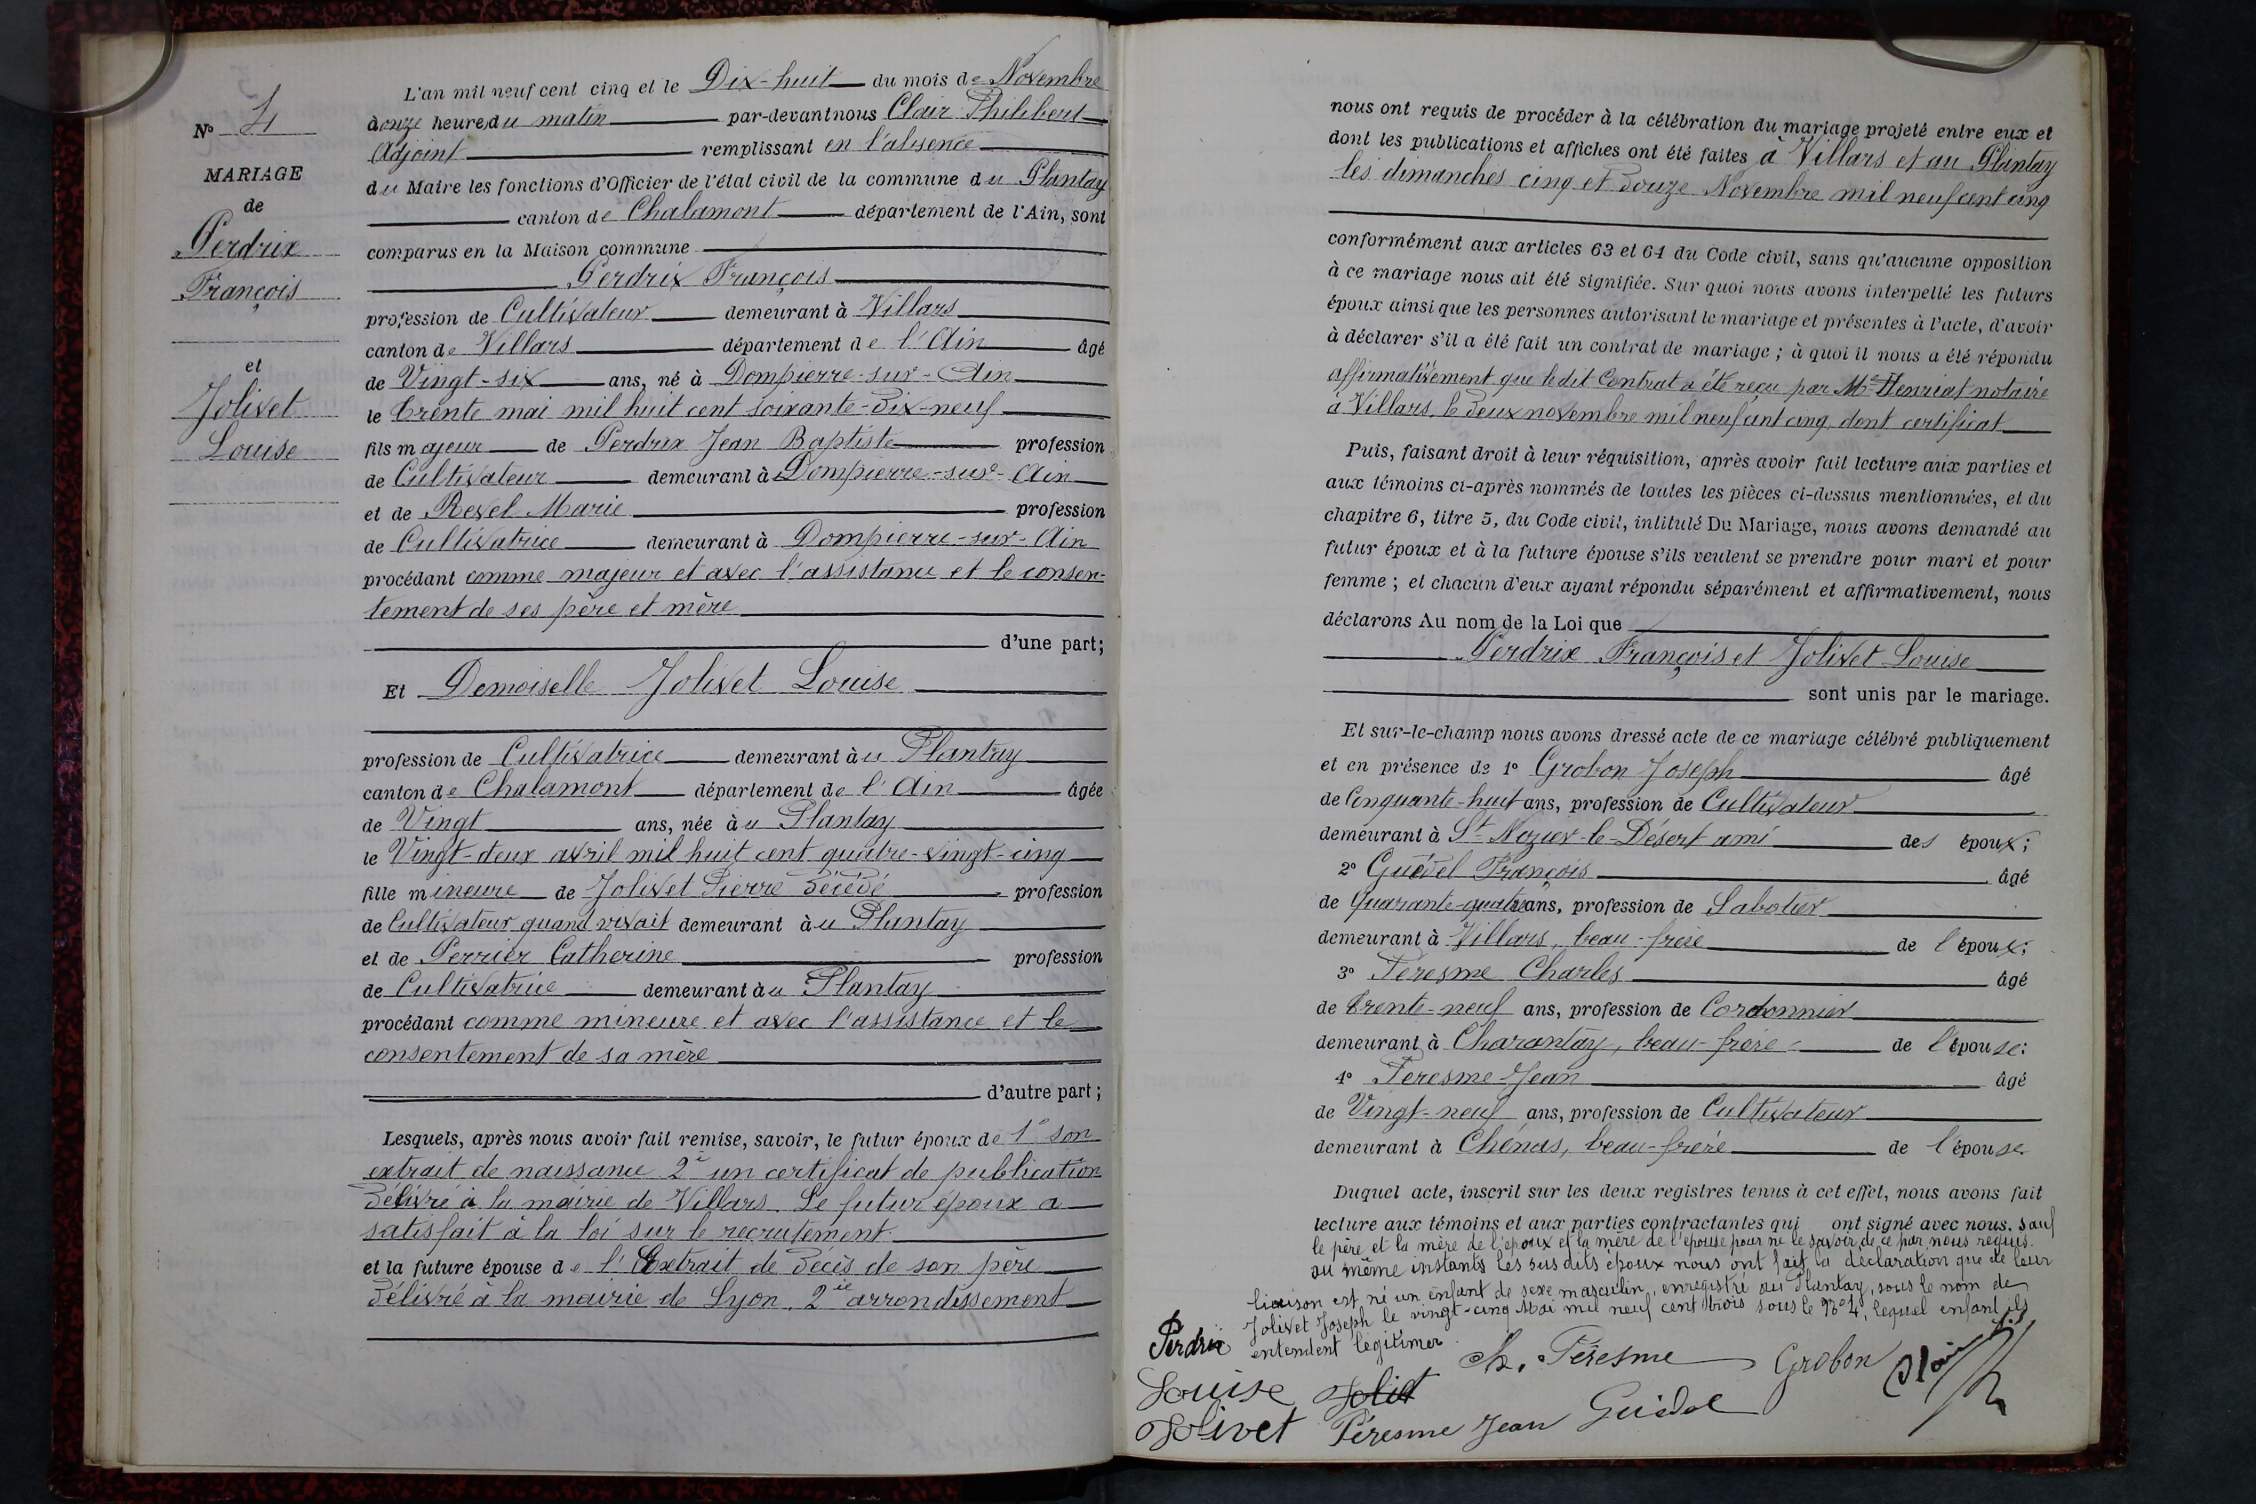 N° 4
MARIAGE
de
Perdrix
François
et
Jolivet
Louise
L'an mil neuf cent cinq et le Dix-huit du mois de Novembre
à onze heures du matin par-devant nous Clair Philibert
Adjoint remplissant en l'absence
du Maire les fonctions d'Officier de l'état civil de la commune du Plantay
canton de Chalamont département de l'Ain, sont
comparus en la Maison commune
Perdrix François
profession de Cultivateur demeurant à Villars
canton de Villars département de l'Ain âgé
de Vingt-six ans, né à Dompierre-sur-Ain
le trente mai mil huit cent soixante-dix-neuf
fils majeur de Perdrix Jean Baptiste profession
de Cultivateur demeurant à Dompierre-sur-Ain
et de Revel Marie profession
de Cultivatrice demeurant à Dompierre-sur-Ain
procédant comme majeur et avec l'assistance et le consen-
tement de ses père et mère
d'une part;
Et Demoiselle Jolivet Louise
profession de Cultivatrice demeurant àu Plantay
canton de Chalamont département de l'Ain âgée
de Vingt ans, née àu Plantay
le Vingt-deux avril mil huit cent quatre-vingt-cinq
fille mineure de Jolivet Pierre décédé profession
de Cultivateur quand vivait demeurant àu Plantay
et de Perrier Catherine profession
de Cultivatrice demeurant àu Plantay
procédant comme mineure et avec l'assistance et le
consentement de sa mère
d'autre part;
Lesquels, après nous avoir fait remise, savoir, le futur époux de 1° son
extrait de naissance 2° un certificat de publication
délivré à la mairie de Villars. Le futur époux a
satisfait à la loi sur le recrutement.
et la future épouse de l'Extrait de décès de son père
délivré à la mairie de Lyon 2ie arrondissement
nous ont requis de procéder à la célébration du mariage projeté entre eux et
dont les publications et affiches ont été faites à Villars et au Plantay
les dimanches cinq et douze Novembre mil neuf cent cinq
conformément aux articles 63 et 64 du Code civil, sans qu'aucune opposition
à ce mariage nous ait été signifiée. Sur quoi nous avons interpellé les futurs
époux ainsi que les personnes autorisant le mariage et présentes à l'acte, d'avoir
à déclarer s'il a été fait un contrat de mariage; à quoi il nous a été répondu
affirmativement que ledit Contrat a été reçu par Me Henriat notaire
à Villars, le deux novembre mil neuf cent cinq, dont certificat
Puis, faisant droit à leur réquisition, après avoir fait lecture aux parties et
aux témoins ci-après nommés de toutes les pièces ci-dessus mentionnées, et du
chapitre 6, titre 5, du Code civil, intitulé Du Mariage, nous avons demandé au
futur époux et à la future épouse s'ils veulent se prendre pour mari et pour
femme; et chacun d'eux ayant répondu séparément et affirmativement, nous
déclarons Au nom de la Loi que
Perdrix François et Jolivet Louise
sont unis par le mariage.
Et sur-le-champ nous avons dressé acte de ce mariage célébré publiquement
et en présence de 1° Grobon Joseph âgé
de Cinquante-huit ans, profession de Cultivateur
demeurant à St Nizier-le-Désert ami des époux;
2° Guédel François âgé
de Quarante-quatre ans, profession de Sabotier
demeurant à Villars, beau-frère de l'époux;
3° Féresme Charles âgé
de trente-neuf ans, profession de Cordonnier
demeurant à Charantay, beau-frère de l'épouse;
4° Feresme Jean âgé
de Vingt-neuf ans, profession de Cultivateur
demeurant à Chénas, beau-frère de l'épouse
Duquel acte, inscrit sur les deux registres tenus à cet effet, nous avons fait
lecture aux témoins et aux parties contractantes qui ont signé avec nous. sauf
le père et la mère de l'époux et la mère de l'épouse pour ne le savoir de ce par nous requis.
au même instants les sus dits époux nous ont fait la déclaration que de leur
liaison est né un enfant de sexe masculin, enregistré au Plantay, sous le nom de
Jolivet Joseph le vingt-cinq Mai mil neuf cent trois sous le N° 4, lequel enfant ils
entendent légitimer
Perdrix
Ch. Féresme Grobon Clair
Louise Joliet
Jolivet Féresme Jean Guédel